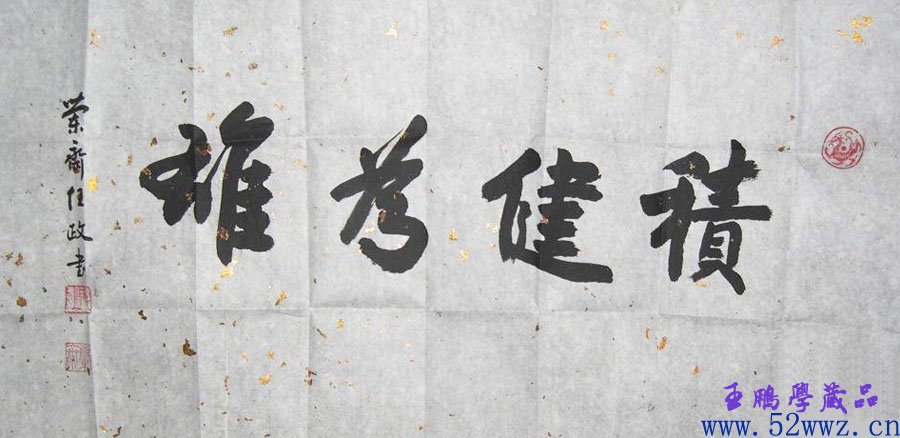 積健為雄
蘭齋任政書
王鵬學藏品
www.52wwz.cn